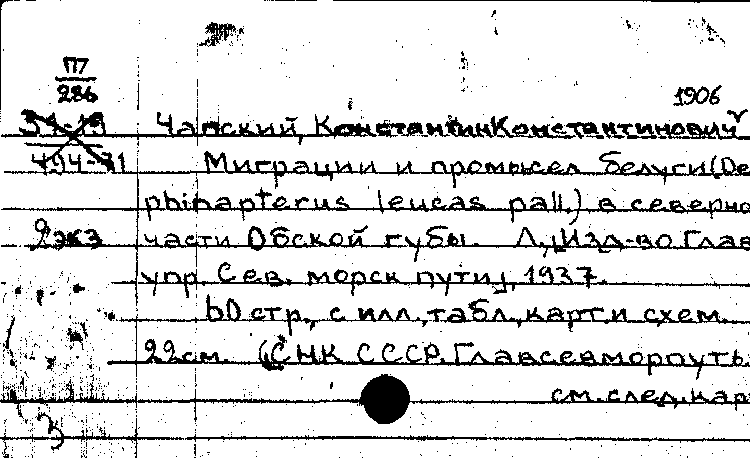 П7
286
1906
Чапский, Константин Константинович
494-71
Миграции и промысел белуги (De
phinapterus leucas pall.) в северно
2 экз
части Обской губы. Л., Изд-во Глав
упр. Сев. морск пути, 1937.
60 стр., с илл., табл., карт. и схем.
22 см. (СНК СССР. Главсевморпуть.
см. след. кар
3